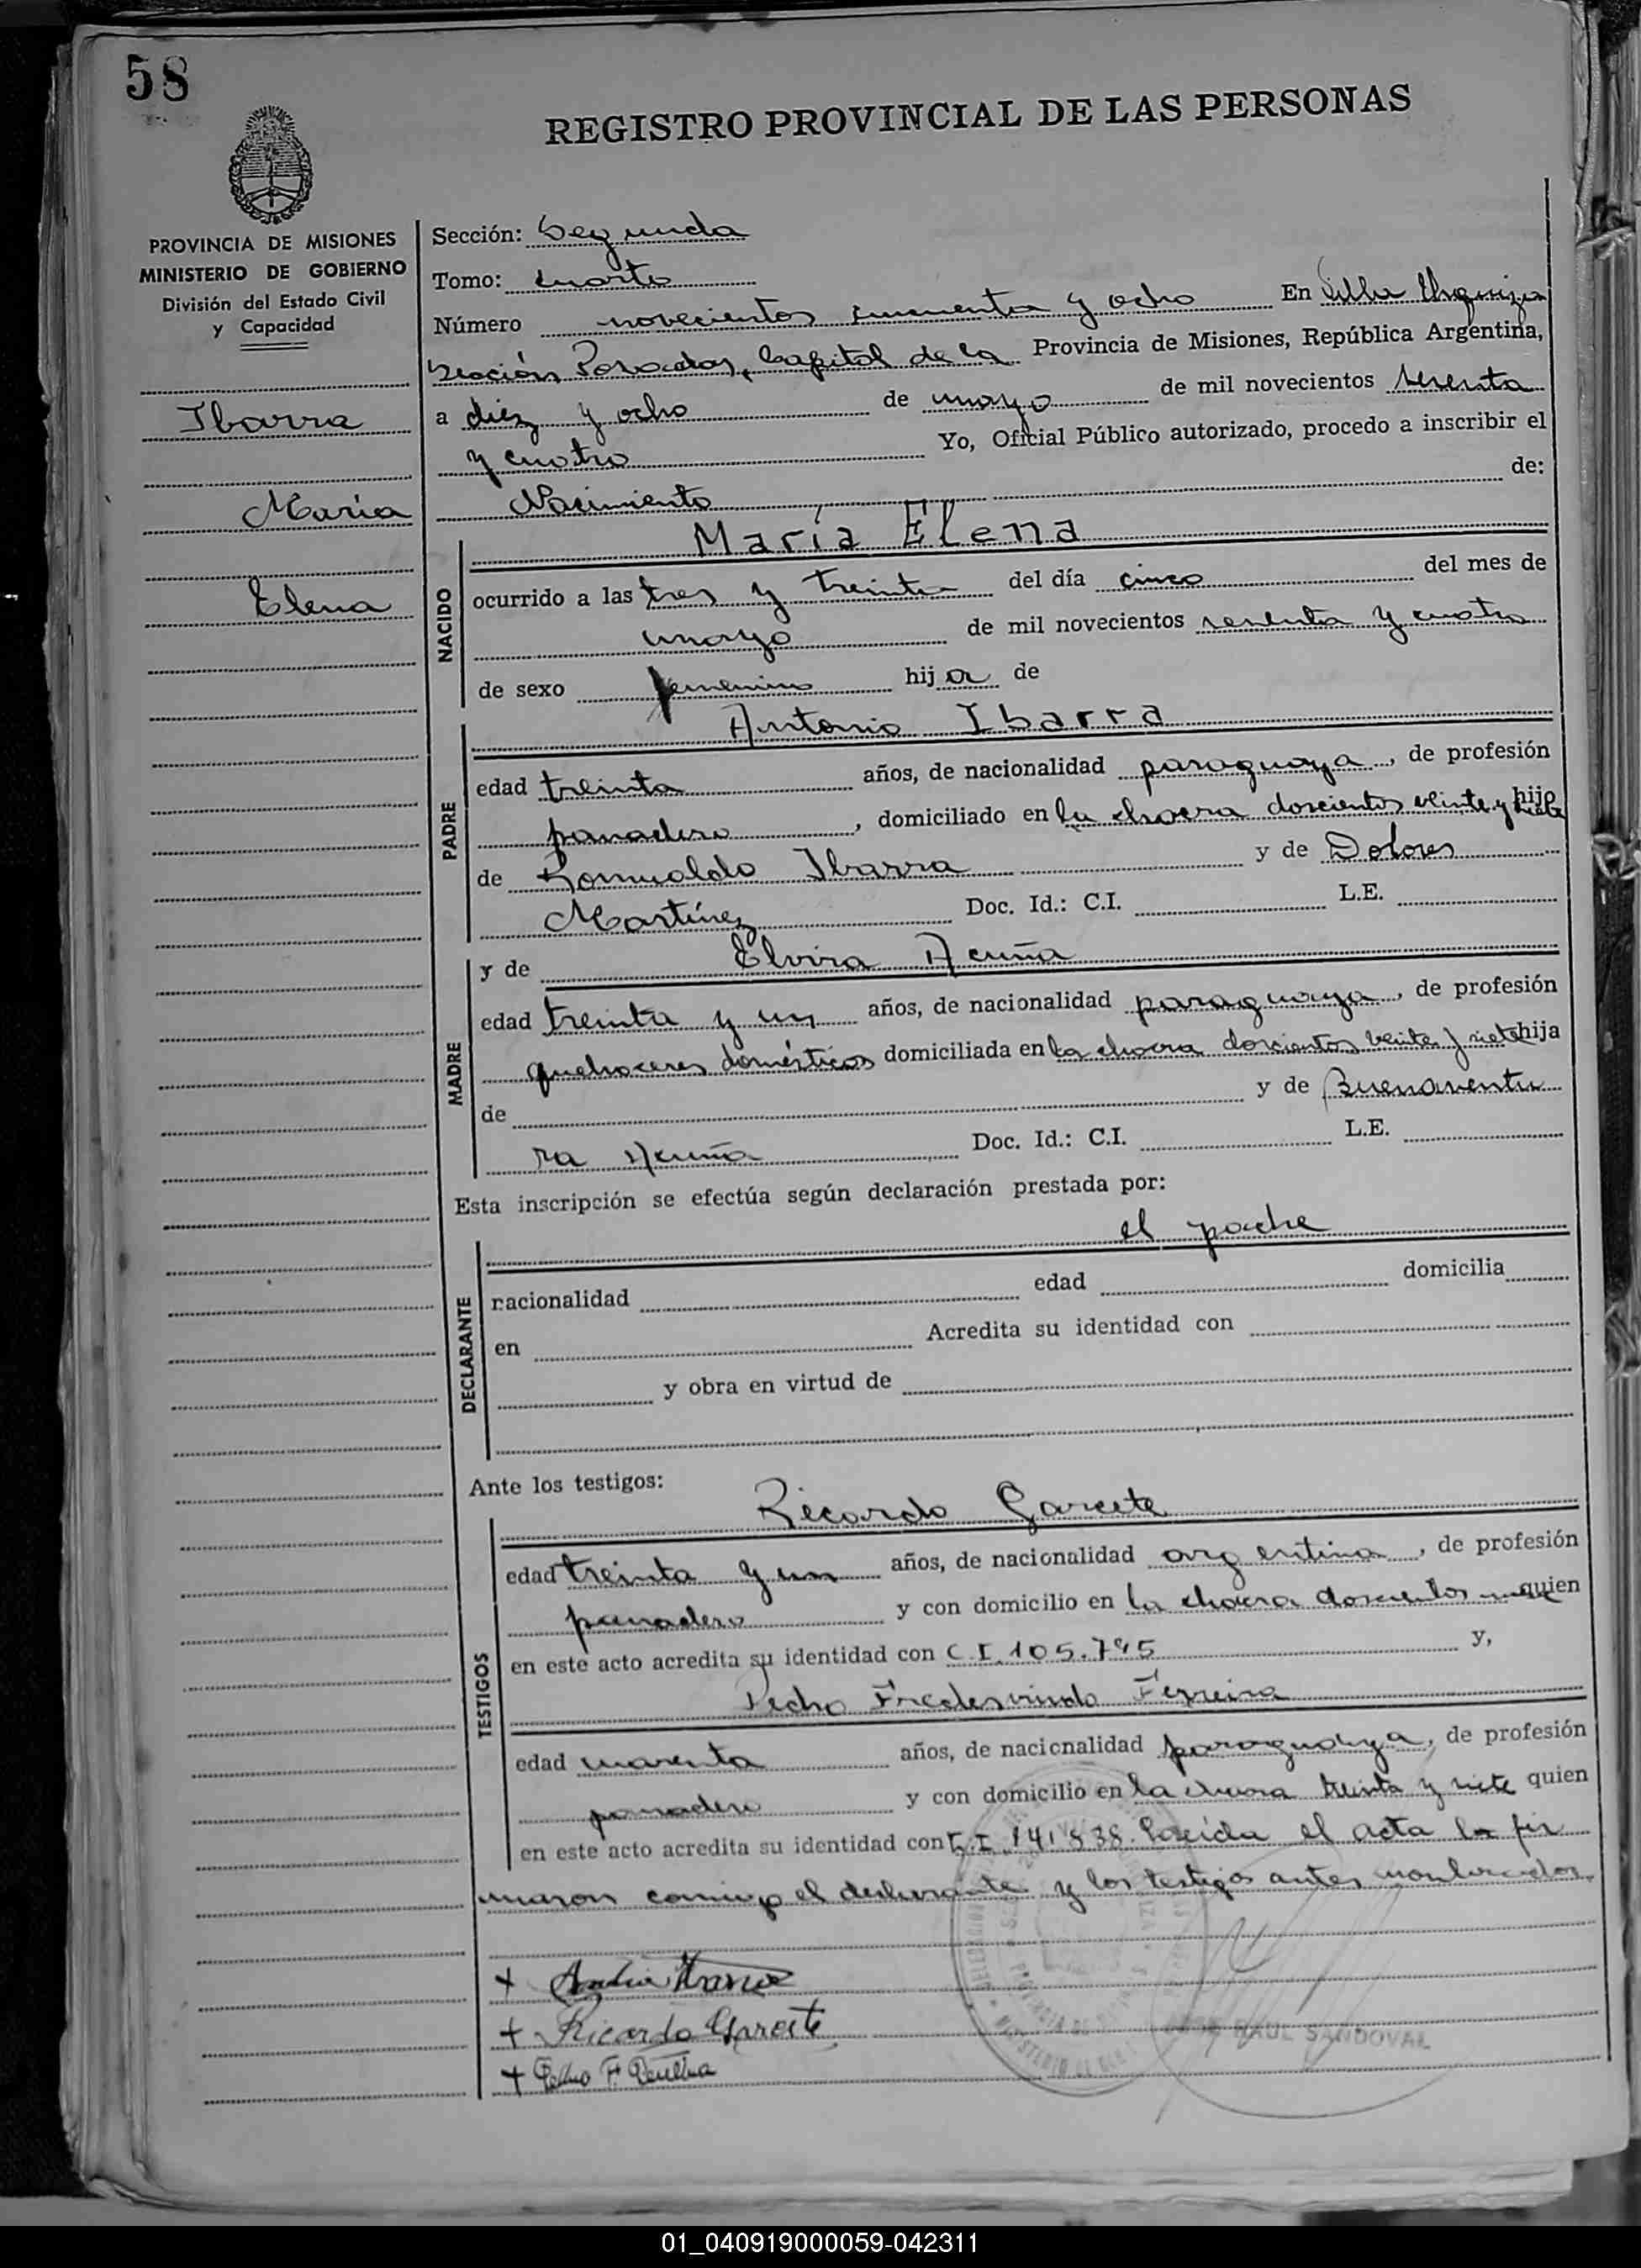 58
REGISTRO PROVINCIAL DE LAS PERSONAS
PROVINCIA DE MISIONES
MINISTERIO DE GOBIERNO
División del Estado Civil
y Capacidad
Ibarra
María
Elena
Sección: Segunda
Tomo: cuarto
Número novecientos cincuenta y ocho En Villa Urquiza
Sección Posadas, Capital de la Provincia de Misiones, República Argentina,
a diez y ocho de mayo de mil novecientos sesenta
y cuatro Yo, Oficial Público autorizado, procedo a inscribir el
Nacimiento de:
María Elena
NACIDO
ocurrido a las tres y treinta del día cinco del mes de
mayo de mil novecientos sesenta y cuatro
de sexo femenino hija de
Antonio Ibarra
PADRE
edad treinta años, de nacionalidad paraguaya, de profesión
panadero, domiciliado en la chacra doscientos veinte y siete hijo
de Romualdo Ibarra y de Dolores
Martínez Doc. Id.: C.I. L.E.
y de Elvira Acuña
MADRE
edad treinta y un años, de nacionalidad paraguaya, de profesión
quehaceres domésticos domiciliada en la chacra doscientos veinte y siete hija
de y de Buenaventu
ra Acuña Doc. Id.: C.I. L.E.
Esta inscripción se efectúa según declaración prestada por:
el padre
DECLARANTE
nacionalidad edad domicilia
en Acredita su identidad con
y obra en virtud de
Ante los testigos:
Ricardo Garcete
TESTIGOS
edad treinta y un años, de nacionalidad argentina, de profesión
panadero y con domicilio en la chacra doscientos quien
en este acto acredita su identidad con C.I. 105.795 y,
Pedro Fredesvindo Ferreira
edad cuarenta años, de nacionalidad paraguaya, de profesión
panadero y con domicilio en la chacra treinta y siete quien
en este acto acredita su identidad con C.I. 141.838. Leída el acta la fir
maron conmigo el declarante y los testigos antes nombrados.
+ Ricardo Garcete
+ Pedro F
RAUL SANDOVAL
01_040919000059-042311